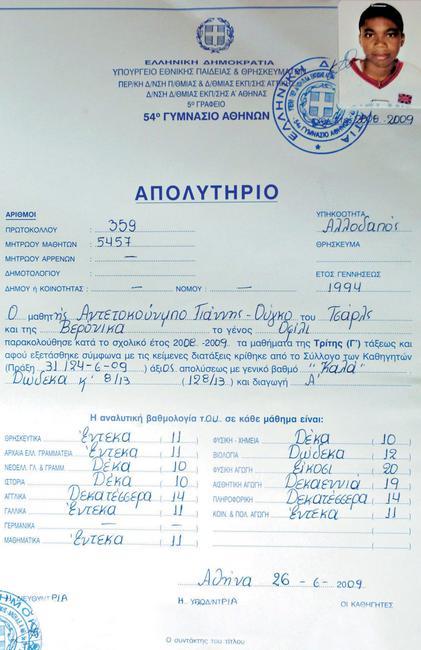 ΕΛΛΗΝΙΚΗ ΔΗΜΟΚΡΑΤΙΑ
ΥΠΟΥΡΓΕΙΟ ΕΘΝΙΚΗΣ ΠΑΙΔΕΙΑΣ & ΘΡΗΣΚΕΥΜΑΤΩΝ
ΠΕΡ/ΚΗ Δ/ΝΣΗ Π/ΘΜΙΑΣ & Δ/ΘΜΙΑΣ ΕΚΠ/ΣΗΣ ΑΤΤΙΚΗΣ
Δ/ΝΣΗ Δ/ΘΜΙΑΣ ΕΚΠ/ΣΗΣ Α' ΑΘΗΝΑΣ
5º ΓΡΑΦΕΙΟ
54º ΓΥΜΝΑΣΙΟ ΑΘΗΝΩΝ
2008-2009
ΑΠΟΛΥΤΗΡΙΟ
ΑΡΙΘΜΟΙ
ΥΠΗΚΟΟΤΗΤΑ
ΠΡΩΤΟΚΟΛΛΟΥ : 359
Αλλοδαπός
ΜΗΤΡΩΟΥ ΜΑΘΗΤΩΝ : 5457
ΘΡΗΣΚΕΥΜΑ
ΜΗΤΡΩΟΥ ΑΡΡΕΝΩΝ : —
ΔΗΜΟΤΟΛΟΓΙΟΥ :
ΕΤΟΣ ΓΕΝΝΗΣΕΩΣ
ΔΗΜΟΥ ή ΚΟΙΝΟΤΗΤΑΣ : — ΝΟΜΟΥ : — 1994
Ο μαθητής Αντετοκούνμπο Γιάννης-Ούγκο του Τσάρλς
και της Βερόνικα το γένος Οφίλι
παρακολούθησε κατά το σχολικό έτος 2008-2009. τα μαθήματα της Τρίτης (Γ') τάξεως και
αφού εξετάσθηκε σύμφωνα με τις κείμενες διατάξεις κρίθηκε από το Σύλλογο των Καθηγητών
(Πράξη 31/24-6-09) άξιος απολύσεως με γενικό βαθμό "Καλά"
Δώδεκα κ' 8/13 (12 8/13) και διαγωγή Α'
Η αναλυτική βαθμολογία του σε κάθε μάθημα είναι:
ΘΡΗΣΚΕΥΤΙΚΑ Έντεκα ( 11 )
ΑΡΧΑΙΑ ΕΛΛ. ΓΡΑΜΜΑΤΕΙΑ Έντεκα ( 11 )
ΝΕΟΕΛΛ. ΓΛ & ΓΡΑΜΜ. Δέκα ( 10 )
ΙΣΤΟΡΙΑ Δέκα ( 10 )
ΑΓΓΛΙΚΑ Δεκατέσσερα ( 14 )
ΓΑΛΛΙΚΑ Έντεκα ( 11 )
ΓΕΡΜΑΝΙΚΑ — ( — )
ΜΑΘΗΜΑΤΙΚΑ Έντεκα ( 11 )
ΦΥΣΙΚΗ - ΧΗΜΕΙΑ Δέκα ( 10 )
ΒΙΟΛΟΓΙΑ Δώδεκα ( 12 )
ΦΥΣΙΚΗ ΑΓΩΓΗ Είκοσι ( 20 )
ΑΙΣΘΗΤΙΚΗ ΑΓΩΓΗ Δεκαεννιά ( 19 )
ΠΛΗΡΟΦΟΡΙΚΗ Δεκατέσσερα ( 14 )
ΚΟΙΝ. & ΠΟΛ. ΑΓΩΓΗ Έντεκα ( 11 )
Αθήνα 26 - 6 - 2009
Η ΥΠΟΔ/ΝΤΡΙΑ
ΟΙ ΚΑΘΗΓΗΤΕΣ
Ο συντάκτης του τίτλου